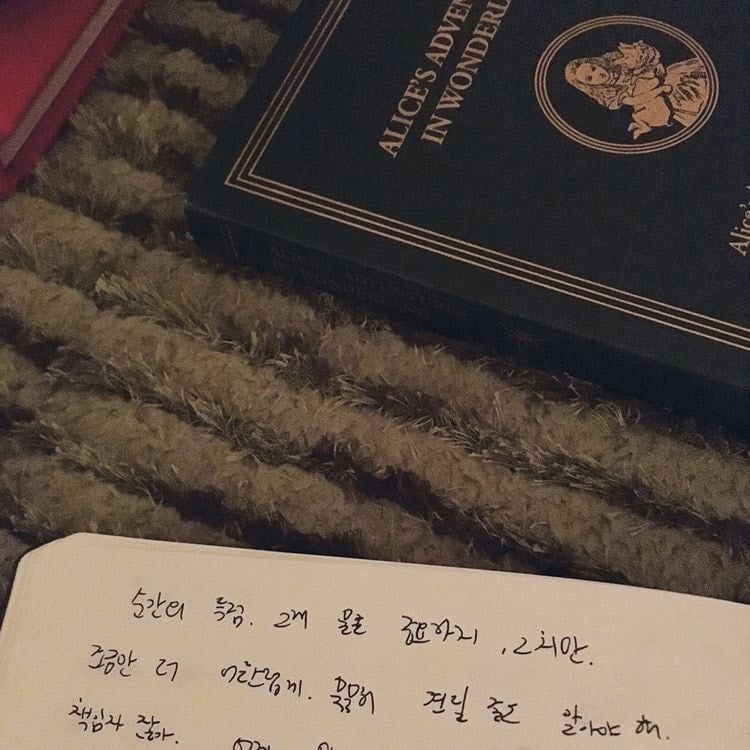 ALICE'S ADVEN
IN WONDERL
Alice'
ALICE'S ADVENTURES
IN WONDERLAND
순간의 특권. 그게 물론 중요하지, 그치만.
조금만 더 어른스럽게. 묵묵히 견딜 줄도 알아야 해.
책임자 잖아.